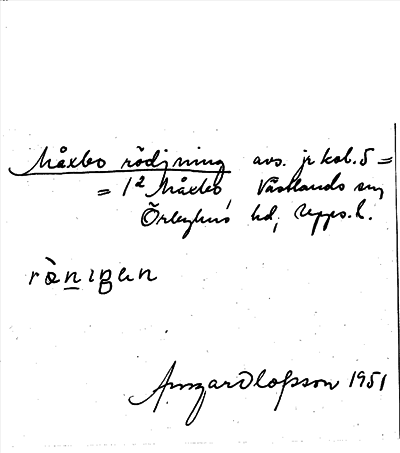 Måxbo rödjning avs. jr kab. 5 =
= 1² Måxbo, Västlands sn,
Örbyhus hd, Upps. l.
rönigan
Olofsson 1951